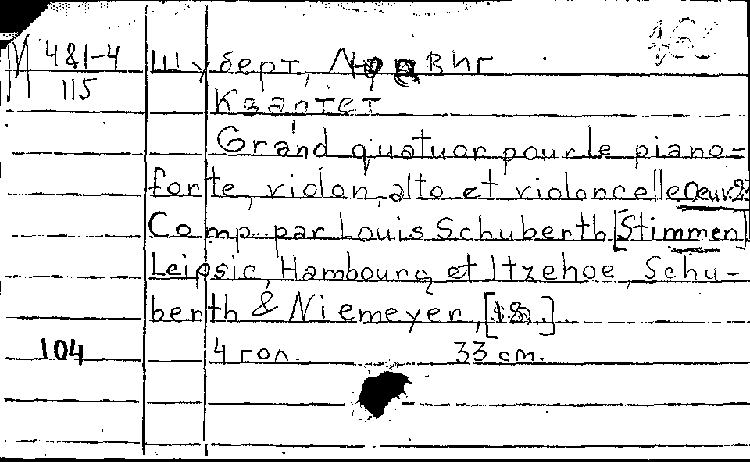 М 481-4
115
Шуберт, Людвиг
Квартет
Grand quatuor pour le piano-
forte, violon, alto et violoncelle Oeuv.
Comp. par Louis Schuberth [Stimmen]
Leipsic, Hambourg et Itzehoe, Schu-
berth & Niemeyer, [18 .]
104
4 гол. 33 cm.